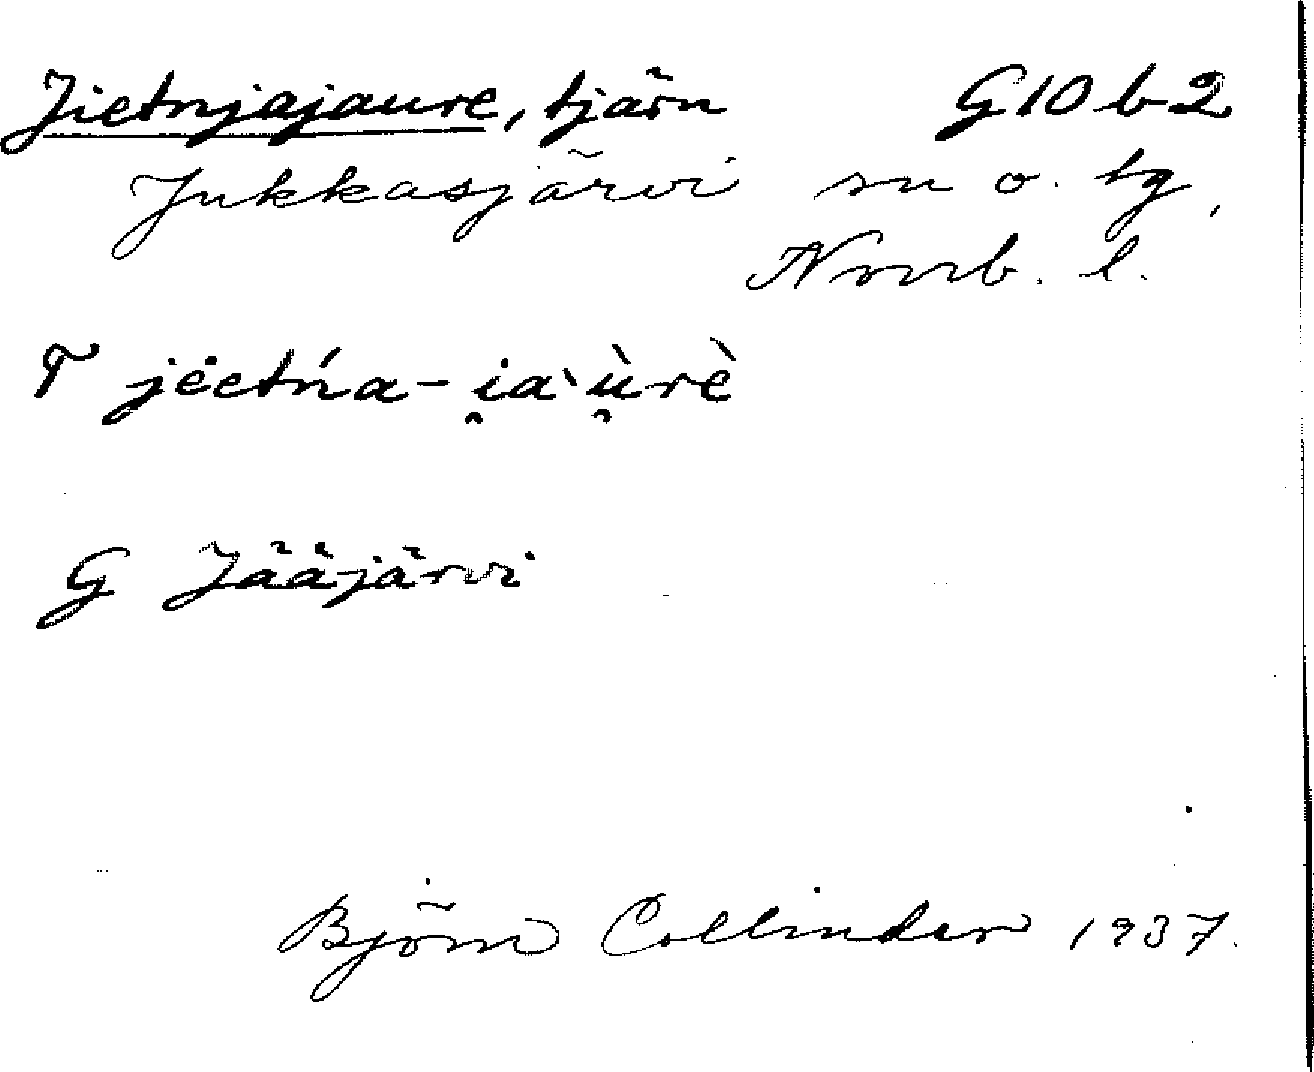 Jietnjajaure, tjärn G10 b2
Jukkasjärvi sn o. tg,
Norrb. l.
T jëetńa-i̯a`ù̯rè
G Jääjärvi
Björn Collinder 1937.